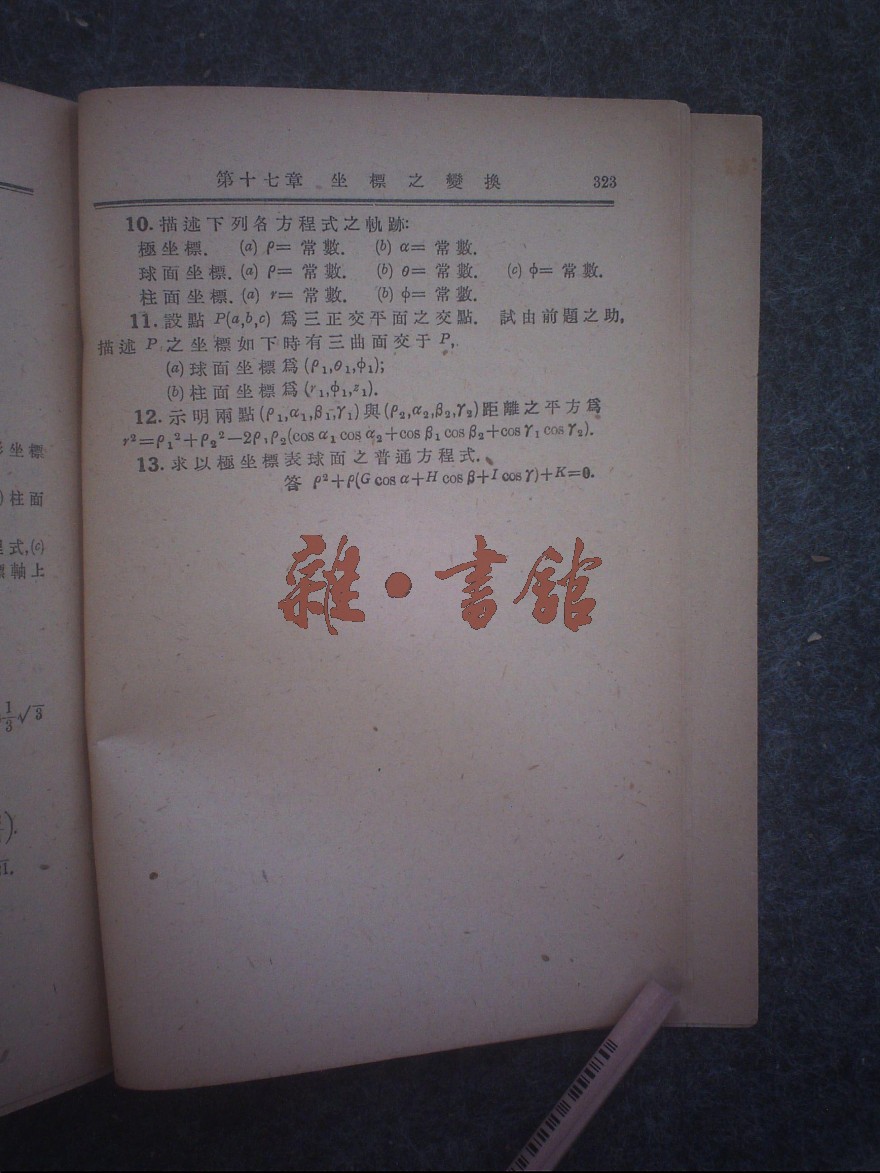 第十七章 坐標之變換 323
10. 描述下列各方程式之軌跡:
極坐標. (a) ρ= 常數. (b) α= 常數.
球面坐標. (a) ρ= 常數. (b) θ= 常數. (c) ϕ= 常數.
柱面坐標. (a) r= 常數. (b) ϕ= 常數.
11. 設點 P(a,b,c) 爲三正交平面之交點. 試由前題之助,
描述 P 之坐標如下時有三曲面交于 P,
(a) 球面坐標爲 (ρ₁,θ₁,ϕ₁);
(b) 柱面坐標爲 (r₁,ϕ₁,z₁).
12. 示明兩點 (ρ₁,α₁,β₁,γ₁) 與 (ρ₂,α₂,β₂,γ₂) 距離之平方爲
r²=ρ₁²+ρ₂²—2ρ,ρ₂(cos α₁ cos α₂+cos β₁ cos β₂+cos γ₁ cos γ₂).
13. 求以極坐標表球面之普通方程式.
答 ρ²+ρ(G cos α+H cos β+I cos γ)+K=0.
坐標
)柱面
式,(c)
軸上
1/3 √3
).
雜·書館